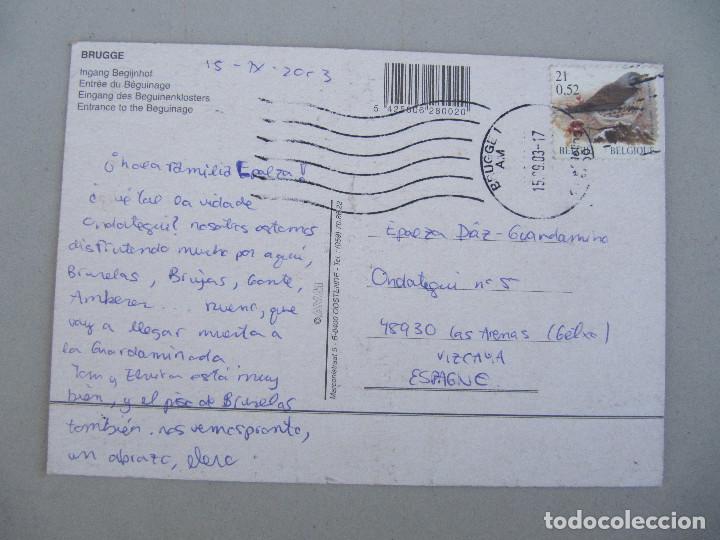 BRUGGE
Ingang Begijnhof
Entrée du Béguinage
Eingang des Beguinenklosters
Entrance to the Beguinage
15 - IX - 2003
5 425006 280020
21
0,52
BELGIQUE
BRUGGE 1
AM
15.09.03-17
¡hola familia Epalza!
¿qué tal la vida de
Ondategui? nosotros estamos
disfrutando mucho por aquí,
Bruselas, Brujas, Gante,
Amberes... bueno, que
voy a llegar muerta a
la Guardaminada
Ion y está muy
bien, y el piso de Bruselas
también. nos vemos pronto,
un abrazo,
Marconistraat 5 - B-8400 OOSTENDE - Tel.: (059) 70.86.22
Epalza Díaz-Guardamino
Ondategui nº 5
48930 Las Arenas (Getxo)
VIZCAYA
ESPAGNE
todocoleccion